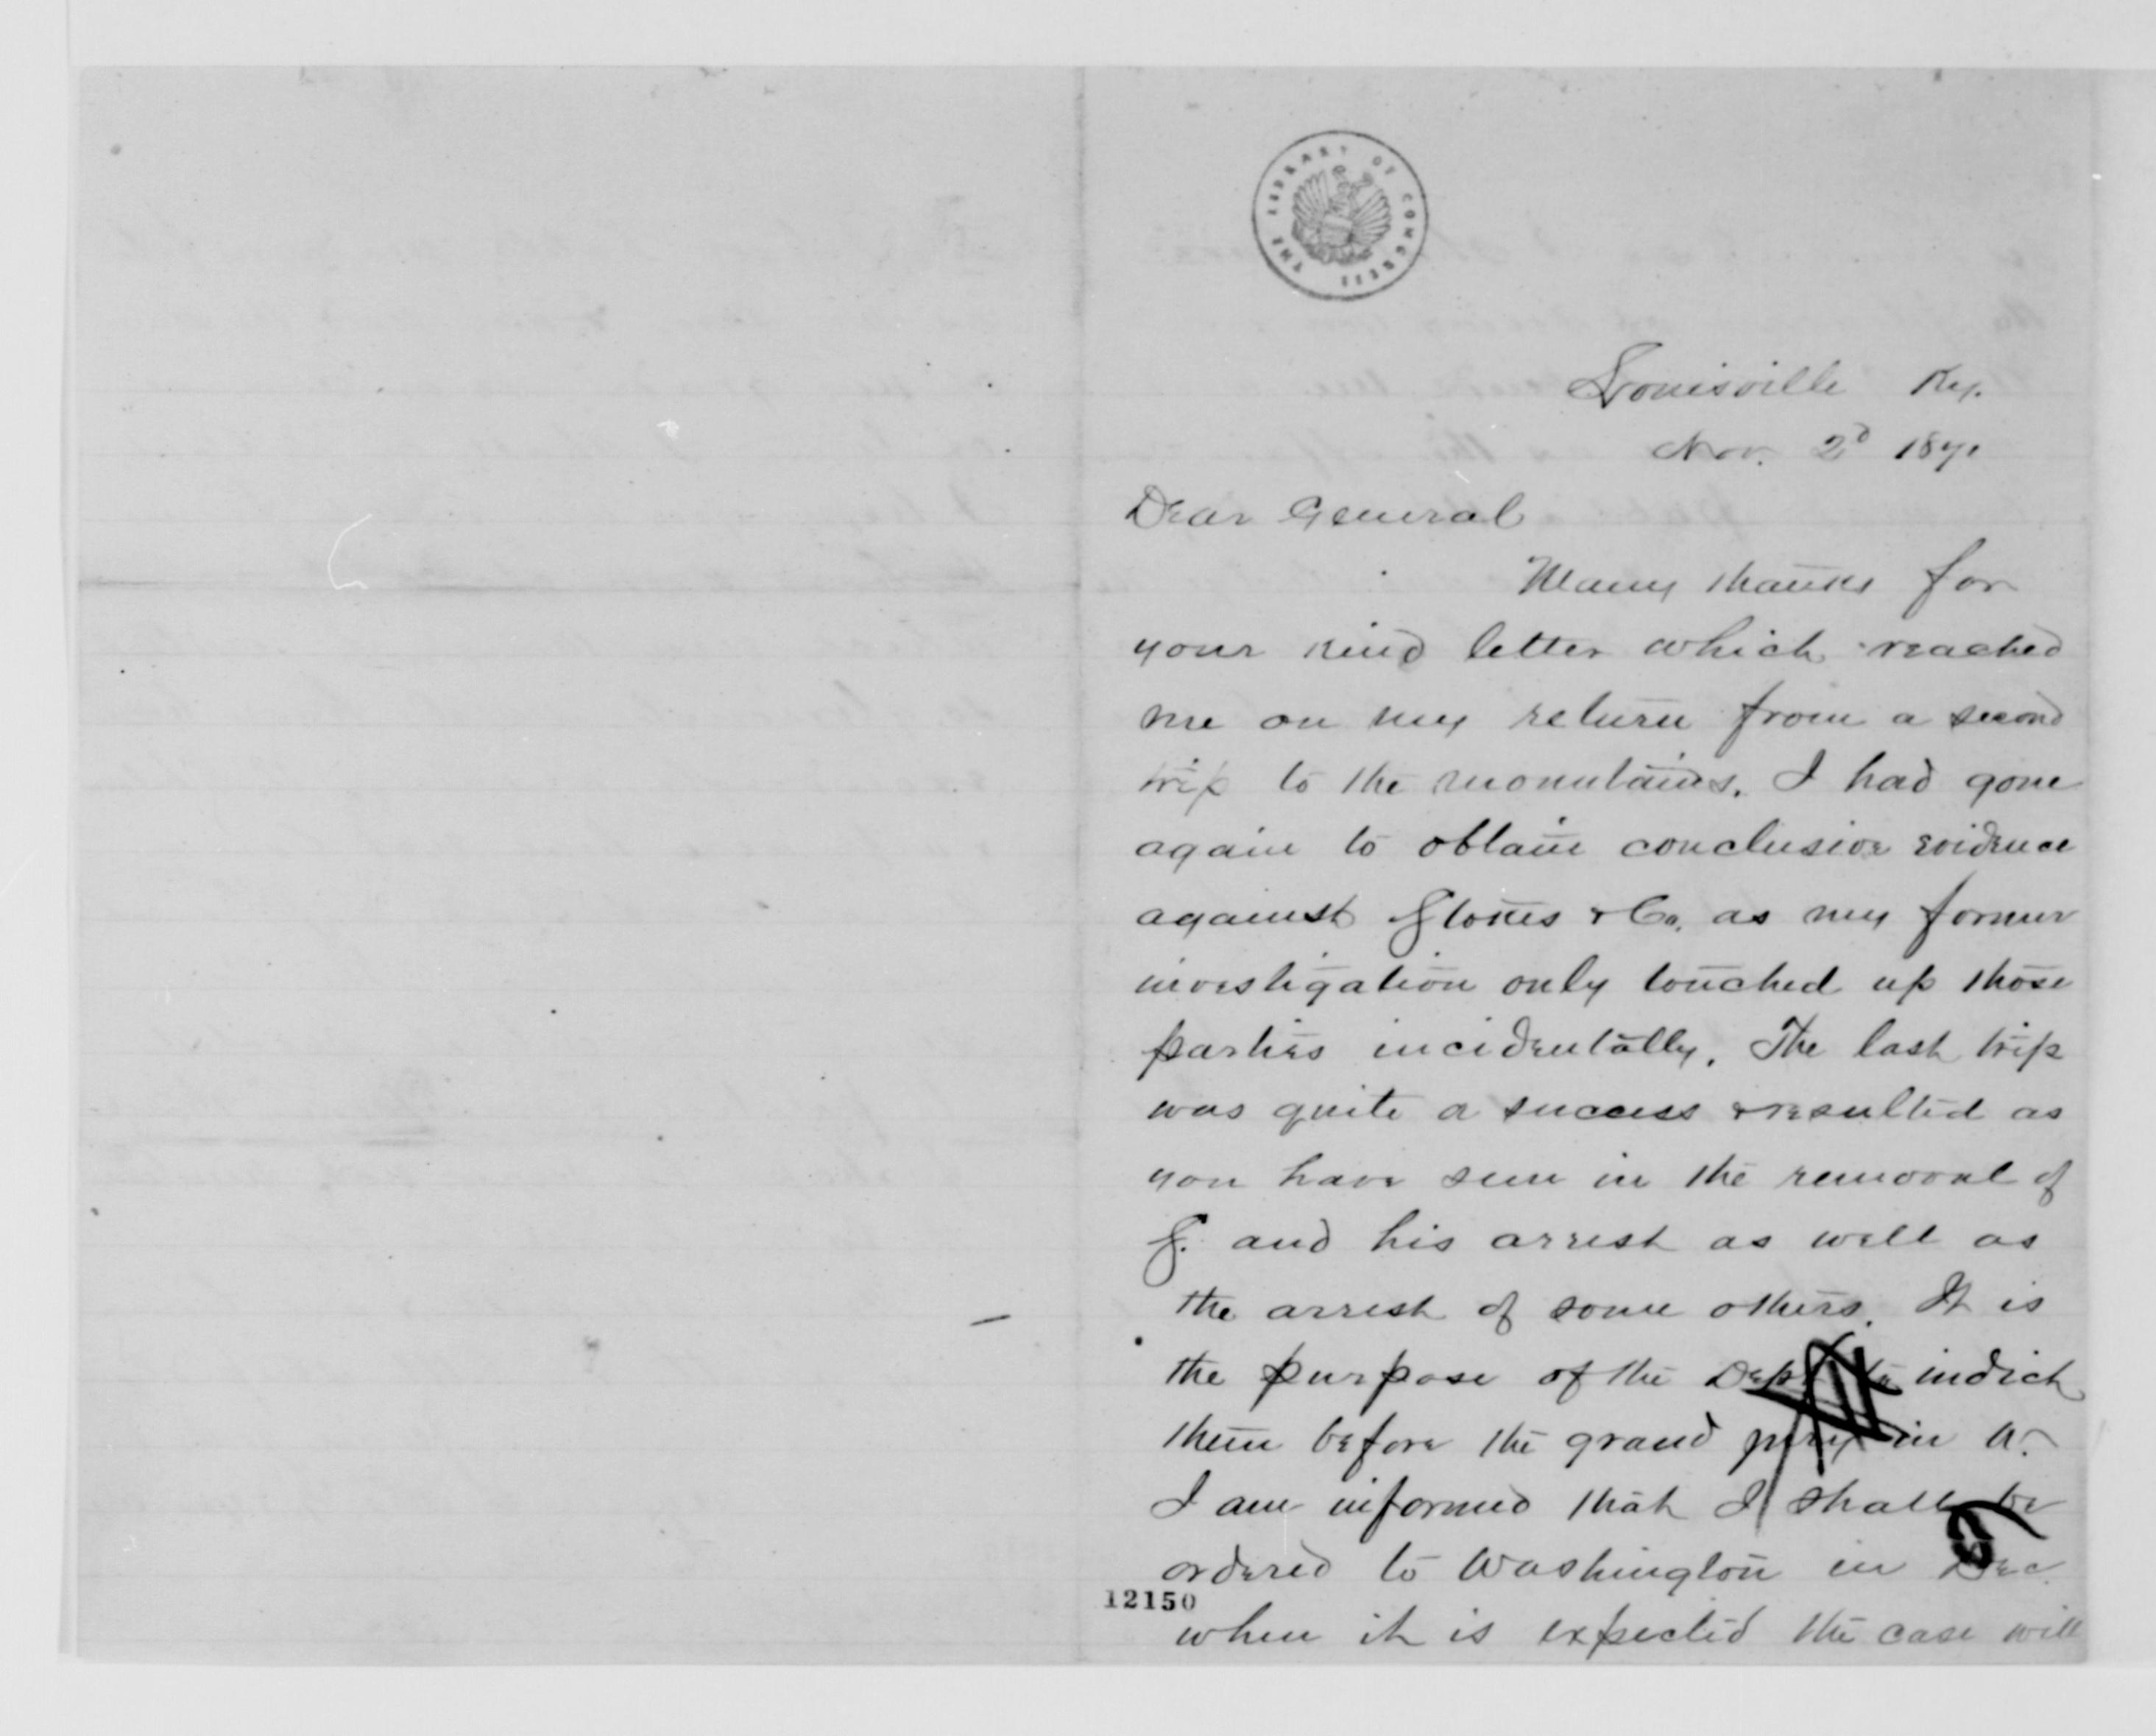 THE LIBRARY OF CONGRESS
Louisville Ky.
Nov. 2d 1871
Dear General
Many thanks for
your kind letter which reached
me on my return from a second
trip to the mountains. I had gone
again to obtain conclusive evidence
against & Co. as my former
investigation only touched up those
parties incidentally. The last trip
was quite a success & resulted as
you have seen in the removal of
and his arrest as well as
the arrest of some others. It is
the purpose of the Dept to indict
them before the grand jury in W.
I am informed that I shall be
ordered to Washington in Dec.
12150
when it is expected the case will